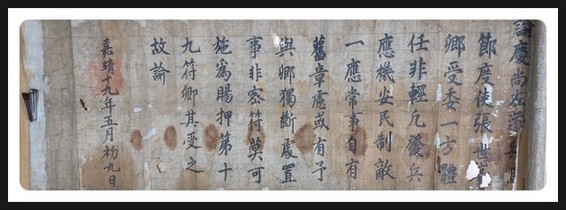 諭慶尚左道
節度使張世
卿受委一方體
任非輕凡發兵
應機安民制敵
一應常事自有
舊章慮或有予
與卿獨斷處置
事非密符莫可
施爲賜押第十
九符卿其受之
故諭
嘉靖十九年五月初九日